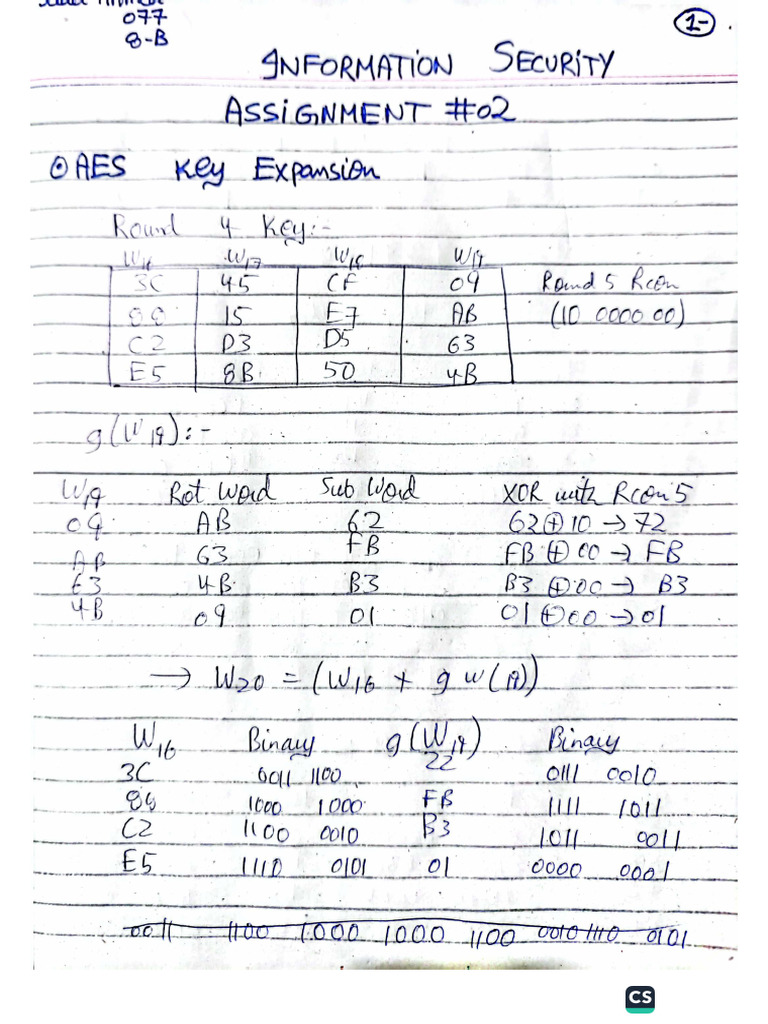 077
8-B
1-
INFORMATION SECURITY
ASSIGNMENT #02
⊙ AES Key Expansion
Round 4 Key:-
W16 W17 W18 W19
3C 45 CF 09 Round 5 Rcon
15 E7 AB (10 0000 00)
C2 D3 D5 63
E5 8B 50 4B
g(W19):-
W19 Rot Word Sub Word XOR with Rcon 5
09 AB 62 62⊕10 → 72
AB 63 FB FB⊕00 → FB
63 4B B3 B3⊕00 → B3
4B 09 01 01⊕00 → 01
→ W20 = (W16 + g w(19))
W16 Binary g(W19) Binary
3C 0011 1100 22 0111 0010
88 1000 1000 FB 1111 1011
C2 1100 0010 B3 1011 0011
E5 1110 0101 01 0000 0001
0011 1100 1000 1000 1100 0010 1110 0101
CS